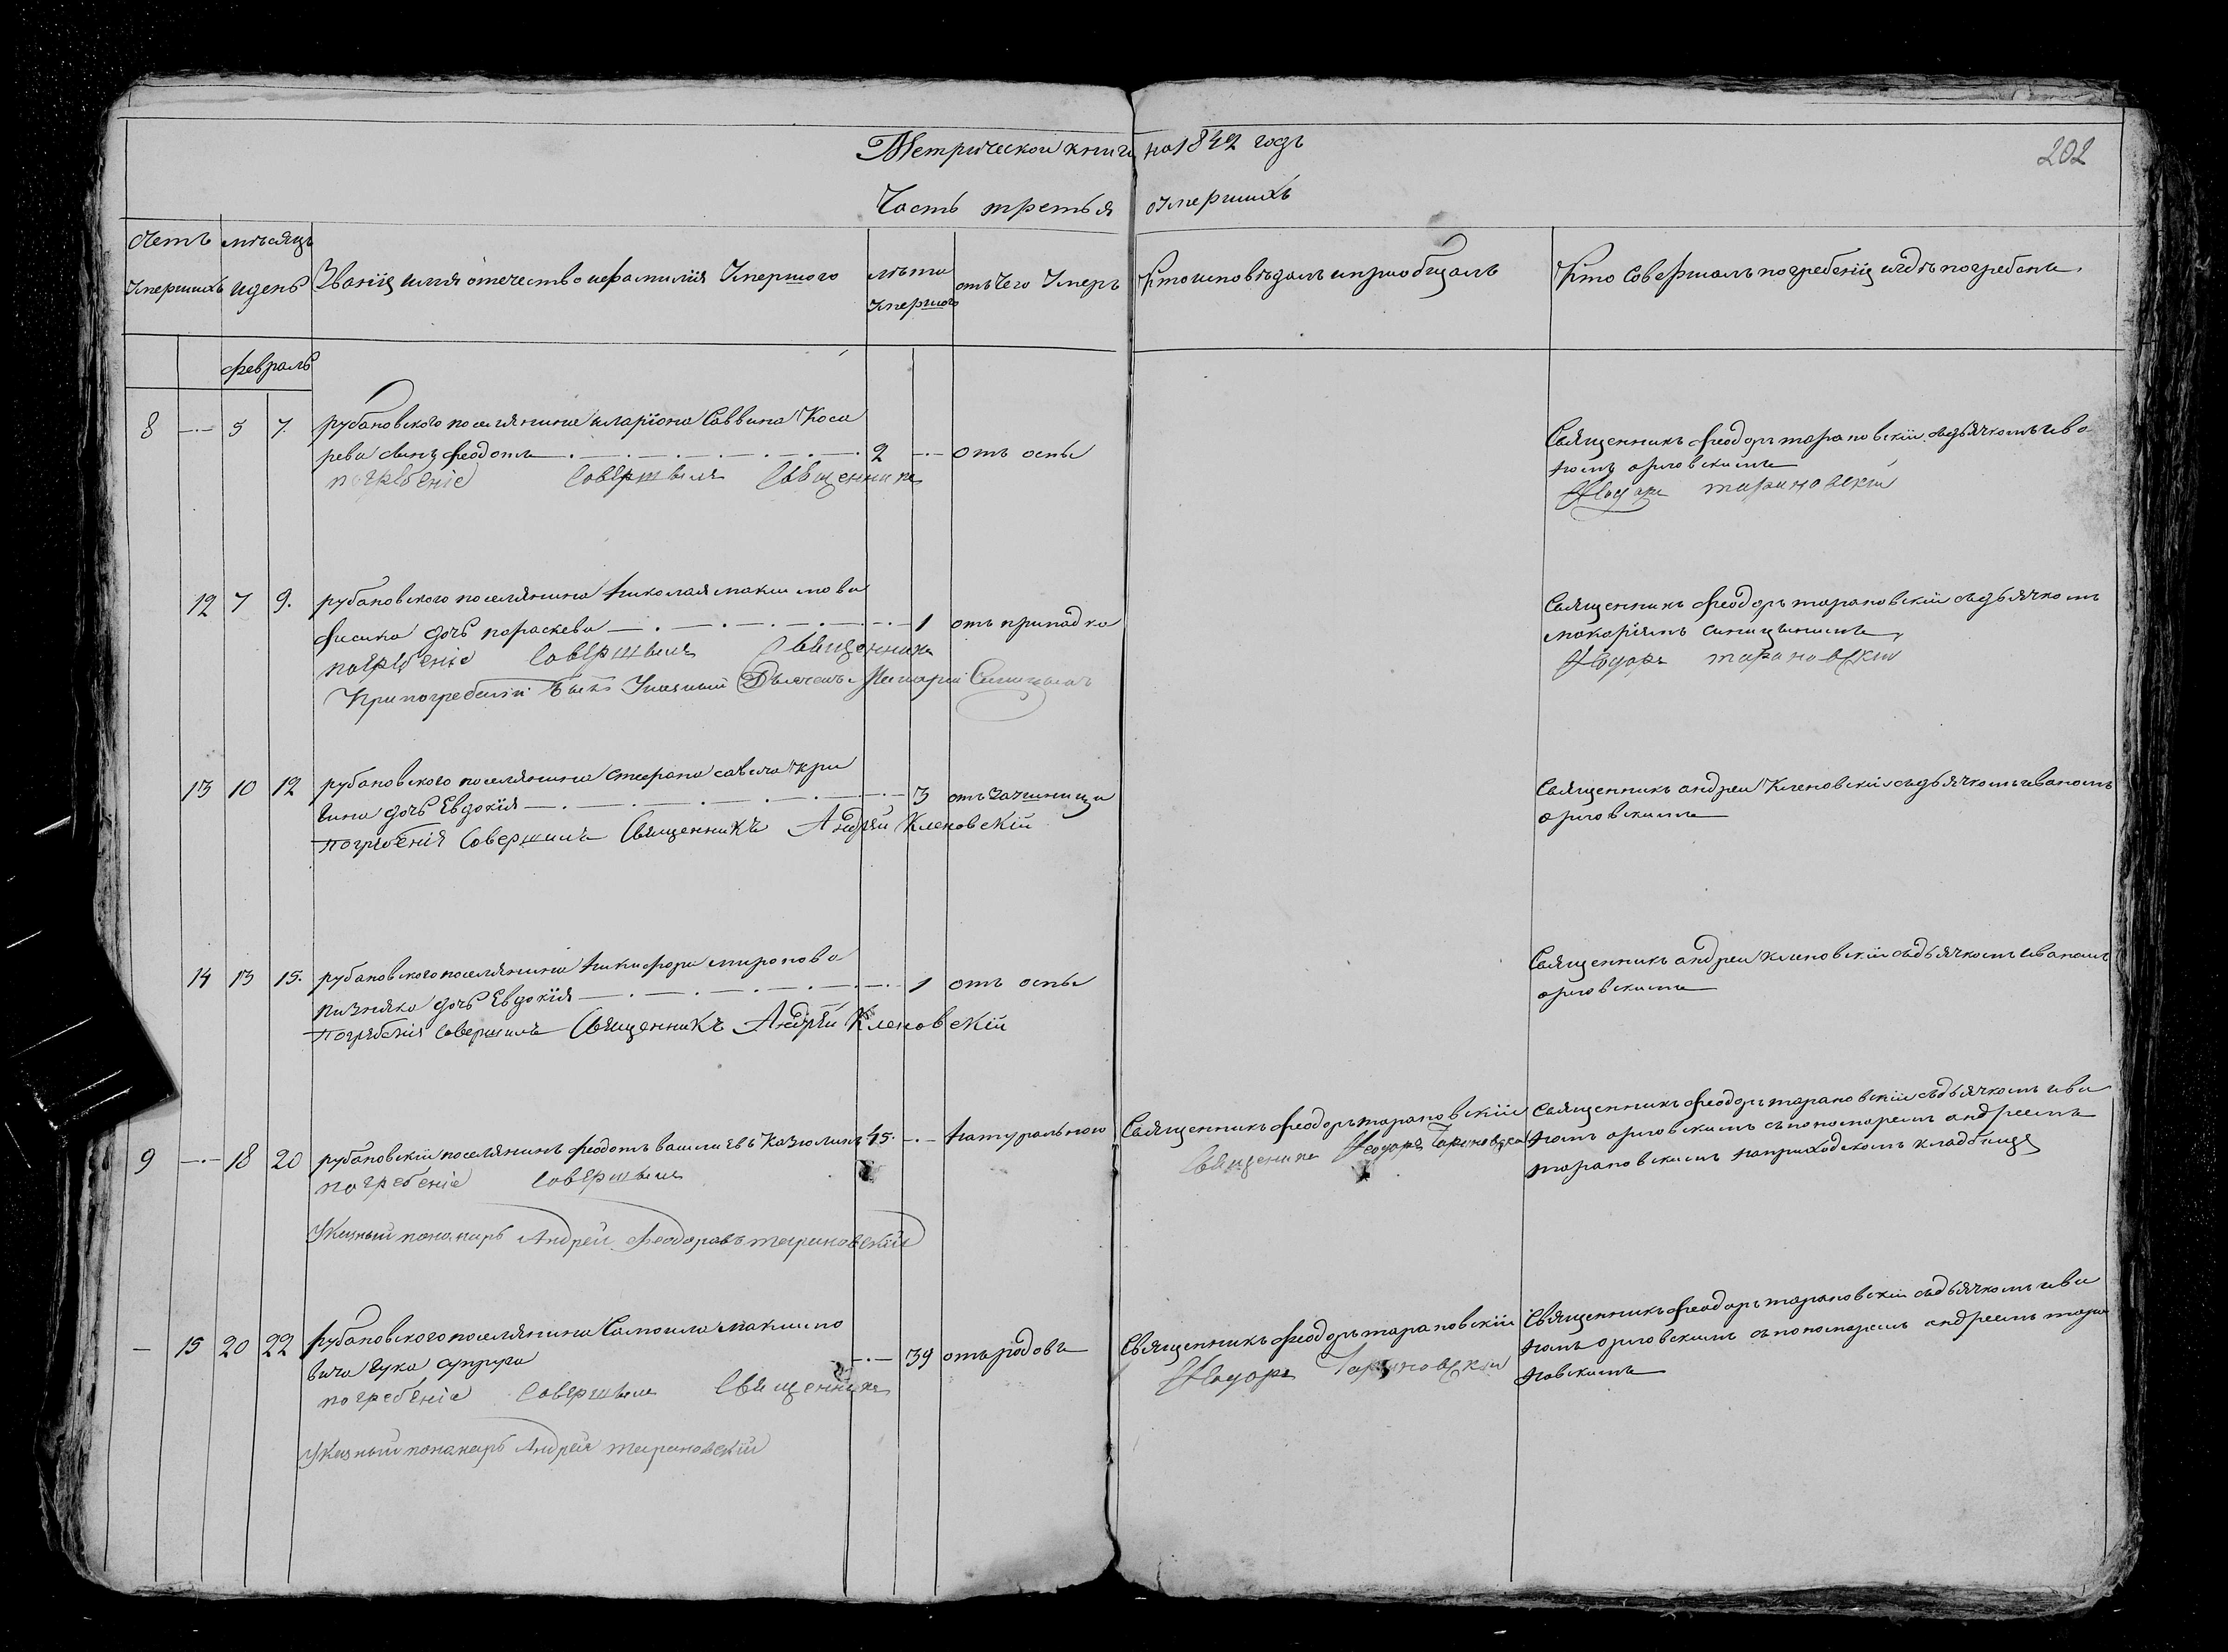 Метрической книги на 1842 годъ
202
Часть третья о умершихъ
Счетъ умершихъ
мѣсяцъ и день
Званіе имя отечество и фамилія Умершого
лѣта умершого
отъ чего Умеръ
Кто исповѣдалъ и приобщалъ
Кто Совершалъ погребеніе и гдѣ погребенъ.
февраль
8 5 7 рубановского поселянина иларіона Саввина Коса
рева сынъ феодотъ 2 отъ оспы
погребеніе Совершилъ Священникъ
Священникъ феодоръ тарановскій съ дьячкомъ ива
номъ орловскимъ
Феодоръ тарановскій
12 7 9. рубановского поселянина николая максимова
фисина дочь пораскева 1 отъ припадка
погребеніе Совершилъ Священникъ
При погребеніи былъ Указный Дьячекъ Макарій Синицынъ
Священникъ феодоръ тарановскій съ дьячкомъ
макаріемъ синицынимъ
Феодоръ тарановскій
13 10 12 рубановского поселянина стефана савича кри
дочь Евдокія 3 отъ
погребенія Совершилъ Священникъ Андрей Кленовскій
Священникъ андрей Кленовскій съ дьячкомъ иваномъ
орловскимъ
14 13 15. рубановского поселянина никифора миронова
пизняка дочь Евдокія 1 отъ оспы
погребенія совершилъ Священникъ Андрей Кленовскій
Священникъ андрей кленовскій съ дьячкомъ иваномъ
орловскимъ
9 18 20 рубановскій поселянинъ феодотъ василіевъ Казюлинъ 45. натуральною
погребеніе Совершилъ
Указный понамарь Андрей Феодоровъ тарановскій
Священникъ феодоръ тарановскій
Священникъ Феодоръ Тарановскій
Священникъ феодоръ тарановскій съ дьячкомъ ива
номъ орловскимъ съ пономаремъ андреемъ
тарановскимъ на приходскомъ кладбище
15 20 22 рубановского поселянина Самоила максимо
вича чука супруга 39 отъ родовъ
погребеніе Совершилъ Священникъ
Указный понамарь Андрей тарановскій
Священникъ феодоръ тарановскій
Феодоръ Тарановскій
Священникъ феодоръ тарановскій съ дьячкомъ ива
номъ орловскимъ съ пономаремъ андреемъ тара
новскимъ